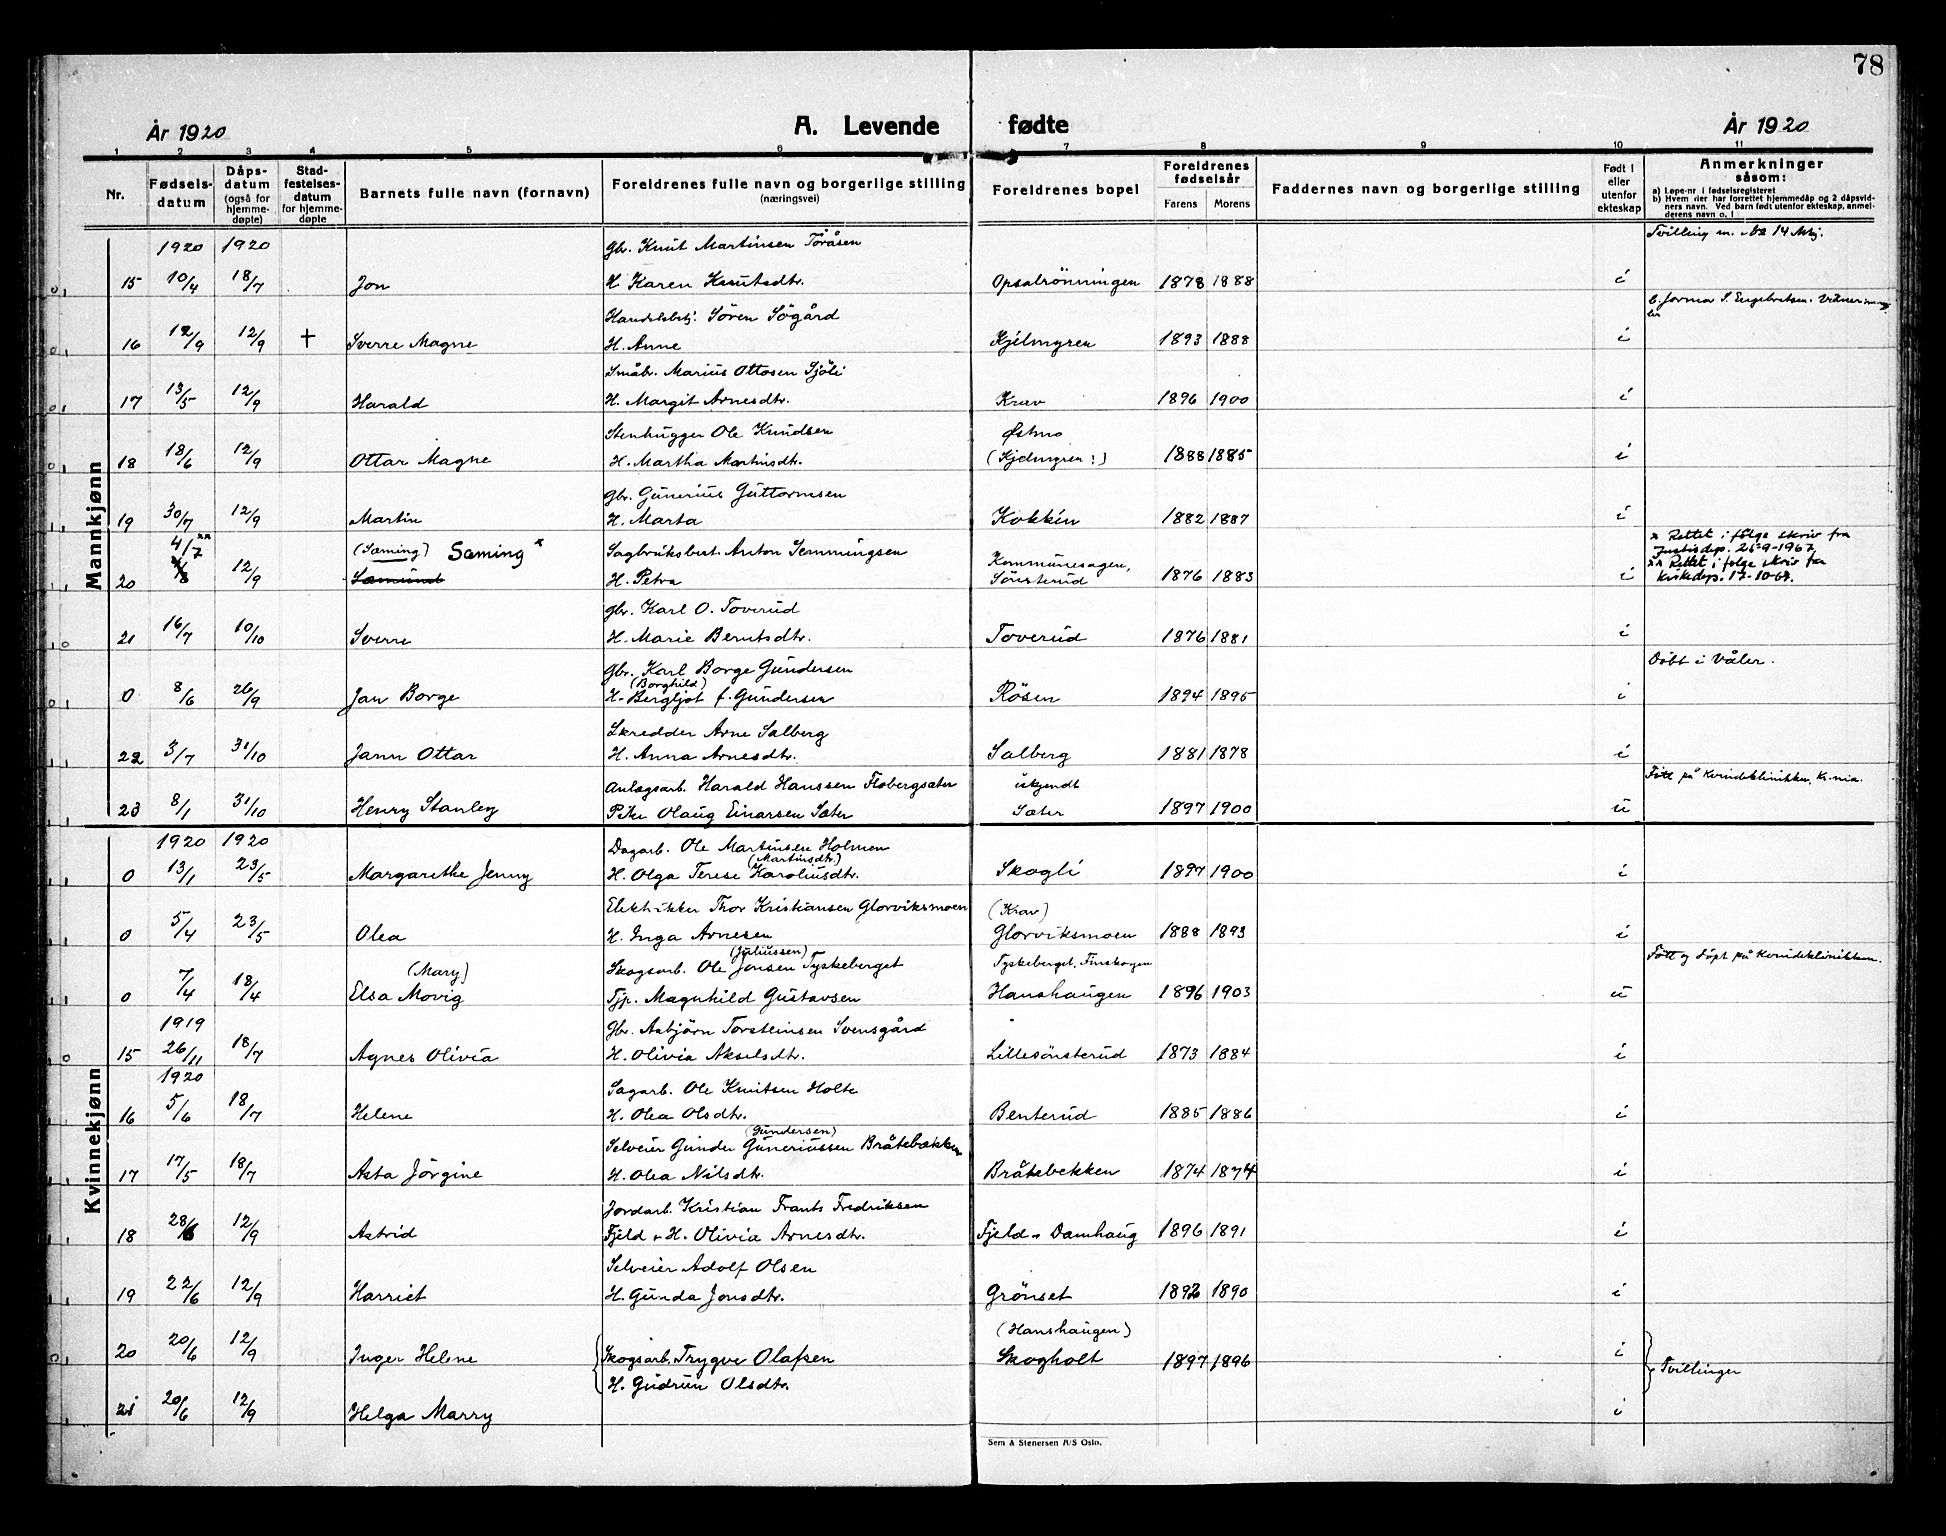 78
År 1920 A. Levende fødte År 1920
1 2 3 4 5 6 7 8 9 10 11
Nr. Fødselsdatum Dåpsdatum (også for hjemmedøpte) Stadfestelsesdatum for hjemmedøpte Barnets fulle navn (fornavn) Foreldrenes fulle navn og borgerlige stilling (næringsvei) Foreldrenes bopel Foreldrenes fødselsår Farens Morens Faddernes navn og borgerlige stilling Født i eller utenfor ekteskap Anmerkninger såsom: a) Løpe-nr i fødselsregisteret b) Hvem der har forrettet hjemmedåp og 2 dåpsvidners navn. Ved barn født utenfor ekteskap, anmelderens navn o. l
Mannkjønn
1920 1920 Gbr. Knut Martinsen Töråsen Tvilling m. 14
15 10/4 18/7 Jon H Karen Knutsdtr. Opsalrönningen 1878 1888 i
Handelsbetj. Sören Sögård S. Engebretsen.
16 12/9 12/9 + Sverre Magne H. Anne Kjelmyren 1893 1888 i
Småbr. Marius Ottosen Sjöli
17 13/5 12/9 Harald H. Margit Arnesdtr. Krav 1896 1900 i
Stenhugger Ole Knudsen Østmo
18 18/6 12/9 Ottar Magne H. Martha Martinsdtr. (Kjelmyren:) 1888 1885 i
Gbr. Gunerius Guttormsen
19 30/7 12/9 Martin H. Marta Kokkin 1882 1887 i
4/7 xx (Sæming) Sæming x Sagbruksbest. Anton Semmingsen Kommunesagen, x Rettet i følge skriv fra Justisdep. 25-9-1967
20 12/9 Sæmund H. Petra Sönsterud 1876 1883 i xx Rettet i følge skriv fra Kirkedep. 17-10-67.
Gbr. Karl O. Toverud
21 16/7 10/10 Sverre H. Marie Berntsdtr. Toverud 1876 1881 i
Gbr. Karl Borge Gundersen Döbt i Våler.
(Borghild)
0 8/6 26/9 Jan Borge H. Bergljot f. Gundersen Rösen 1894 1895 i
Skredder Arne Salberg
22 3/7 31/10 Jann Ottar H. Anna Arnesdtr. Salberg 1881 1878 i
Anlægsarb. Harald Hanssen Flobergsæter Født på Kvindeklinikken, K.nia.
23 8/1 31/10 Henry Stanley Pike Olaug Einarsen Sæter Sæter 1897 1900 u
Kvinnekjønn
1920 1920 Dagarb. Ole Martinsen Holmen
(Martinsdtr.)
0 13/1 23/5 Margarethe Jenny H. Olga Terese Karoliusdtr. Skogli 1897 1900 i
Elektriker Thor Kristiansen Glorviksmoen (Krav)
0 5/4 23/5 Olea H. Inga Arnesen Glorviksmoen 1888 1893 i
(Juliussen)
(Mary) Skogsarb. Ole Jonsen Tyskeberget Tyskeberget, Finskogen Født og døpt på Kvindeklinikken.
0 7/4 18/4 Elsa Movig Tjp. Magnhild Gustavsen Hanshaugen 1896 1903 u
1919 Gbr. Asbjörn Torsteinsen Svensgård
15 26/11 18/7 Agnes Olivia H. Olivia Akselsdtr. Lillesönsterud 1873 1884 i
1920 Sagarb. Ole Knutsen Holte
16 5/6 18/7 Helene H. Olea Olsdtr. Benterud 1885 1886 i
(Gundersen)
Selveier Gunder Guneriussen Bråtebækken
17 17/5 18/7 Asta Jörgine H. Olea Nilsdtr. Bråtebekken 1874 1874 i
Jordarb. Kristian Frants Fredriksen
18 28/6 12/9 Astrid Fjeld + H. Olivia Arnesdtr. Fjeld + Damhaug 1896 1891 i
Selveier Adolf Olsen
19 22/6 12/9 Harriet H. Gunda Jonsdtr. Grönset 1892 1890 i
(Hanshaugen)
20 20/6 12/9 Inger Helene Skogsarb. Trygve Olafsen Skogholt 1897 1896 i Tvillinger
H. Gudrun Olsdtr.
21 20/6 12/9 Helga Marry i
Sem & Stenersen A/S Oslo.